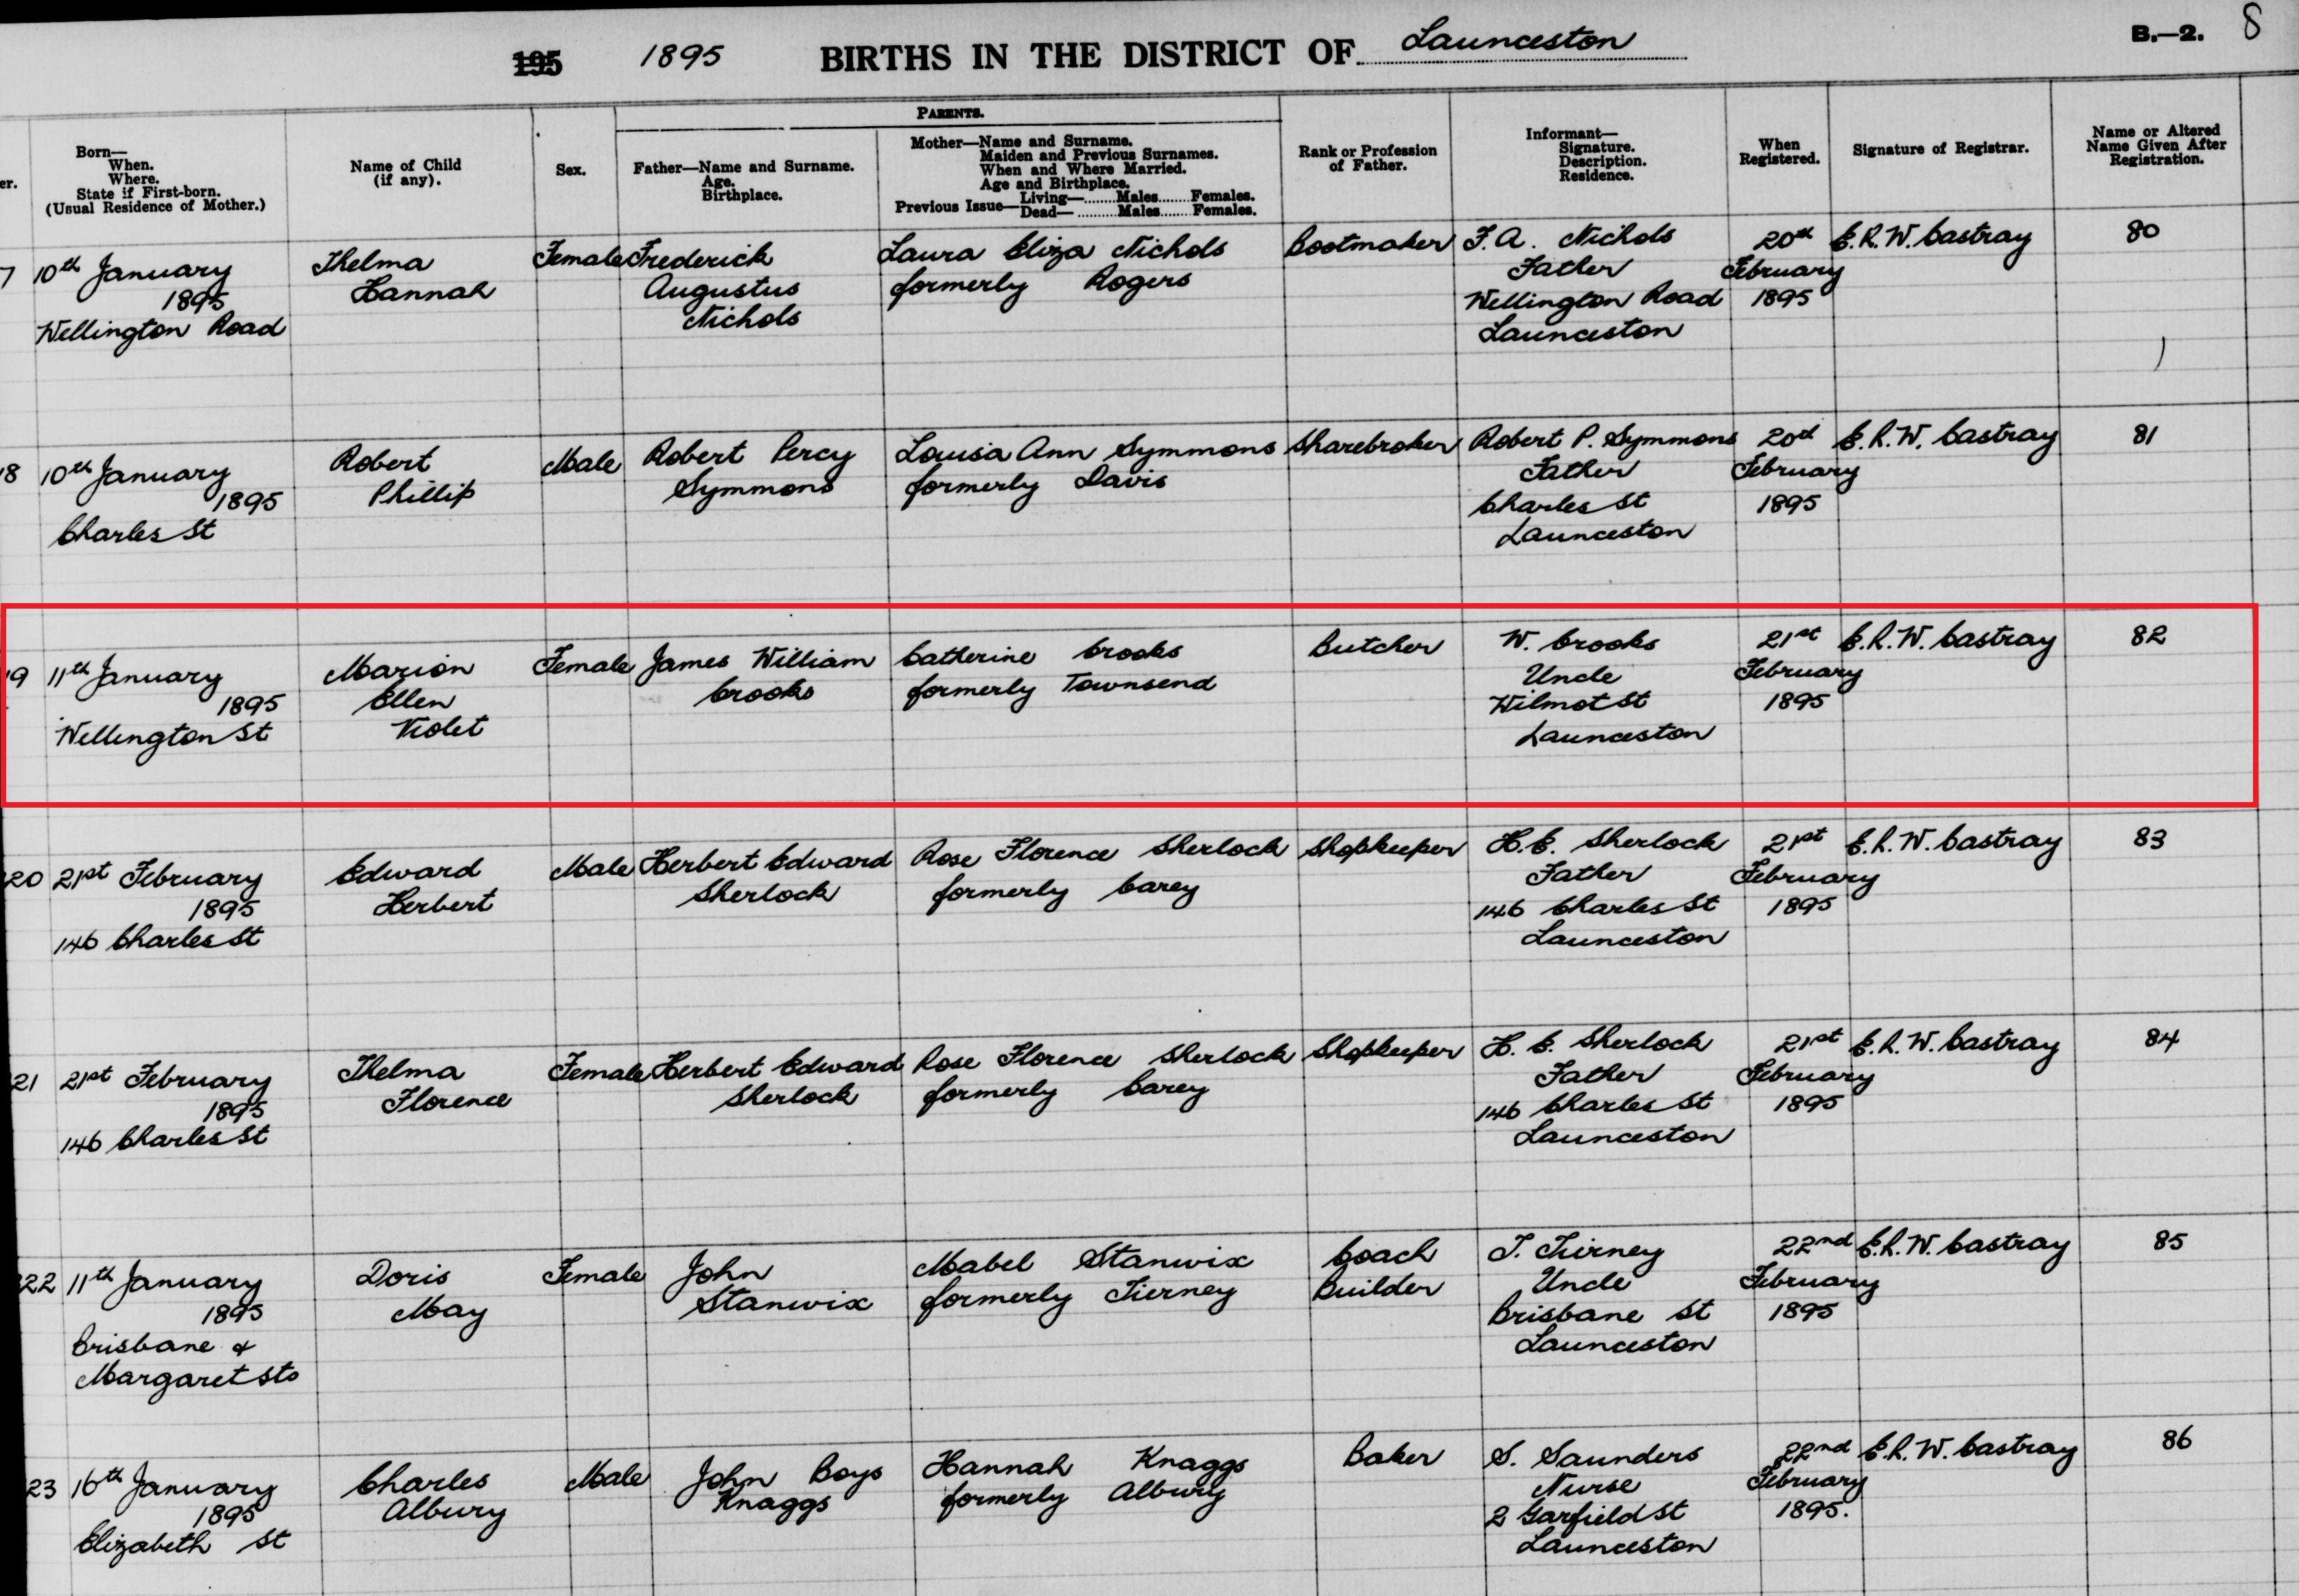 195 1895 BIRTHS IN THE DISTRICT OF Launceston B.—2. 8
PARENTS.
er.
Born—
When.
Where.
State if First-born.
(Usual Residence of Mother.)
Name of Child
(if any).
Sex.
Father—Name and Surname.
Age.
Birthplace.
Mother—Name and Surname.
Maiden and Previous Surnames.
When and Where Married.
Age and Birthplace.
Previous Issue—Living—.......Males.......Females.
Dead—.........Males.......Females.
Rank or Profession
of Father.
Informant—
Signature.
Description.
Residence.
When
Registered.
Signature of Registrar.
Name or Altered
Name Given After
Registration.
7 10th January
1895
Wellington Road
Thelma
Hannah
Female
Frederick
Augustus
Nichols
Laura Eliza Nichols
formerly Rogers
Bootmaker
F. A. Nichols
Father
Wellington Road
Launceston
20th
February
1895
E. R. W. Castray
80
18 10th January
1895
Charles St
Robert
Phillip
Male
Robert Percy
Symmons
Louisa Ann Symmons
formerly Davis
Sharebroker
Robert P. Symmons
Father
Charles St
Launceston
20th
February
1895
E. R. W. Castray
81
19 11th January
1895
Wellington St
Marion
Ellen
Violet
Female
James William
Crooks
Catherine Crooks
formerly Townsend
Butcher
W. Crooks
Uncle
Wilmot St
Launceston
21st
February
1895
E. R. W. Castray
82
20 21st February
1895
146 Charles St
Edward
Herbert
Male
Herbert Edward
Sherlock
Rose Florence Sherlock
formerly Carey
Shopkeeper
H. E. Sherlock
Father
146 Charles St
Launceston
21st
February
1895
E. R. W. Castray
83
21 21st February
1895
146 Charles St
Thelma
Florence
Female
Herbert Edward
Sherlock
Rose Florence Sherlock
formerly Carey
Shopkeeper
H. E. Sherlock
Father
146 Charles St
Launceston
21st
February
1895
E. R. W. Castray
84
22 11th January
1895
Brisbane &
Margaret Sts
Doris
May
Female
John
Stanwix
Mabel Stanwix
formerly Tierney
Coach
Builder
T. Tierney
Uncle
Brisbane St
Launceston
22nd
February
1895
E. R. W. Castray
85
23 16th January
1895
Elizabeth St
Charles
Albury
Male
John Boys
Knaggs
Hannah Knaggs
formerly Albury
Baker
S. Saunders
Nurse
2 Garfield St
Launceston
22nd
February
1895.
E. R. W. Castray
86